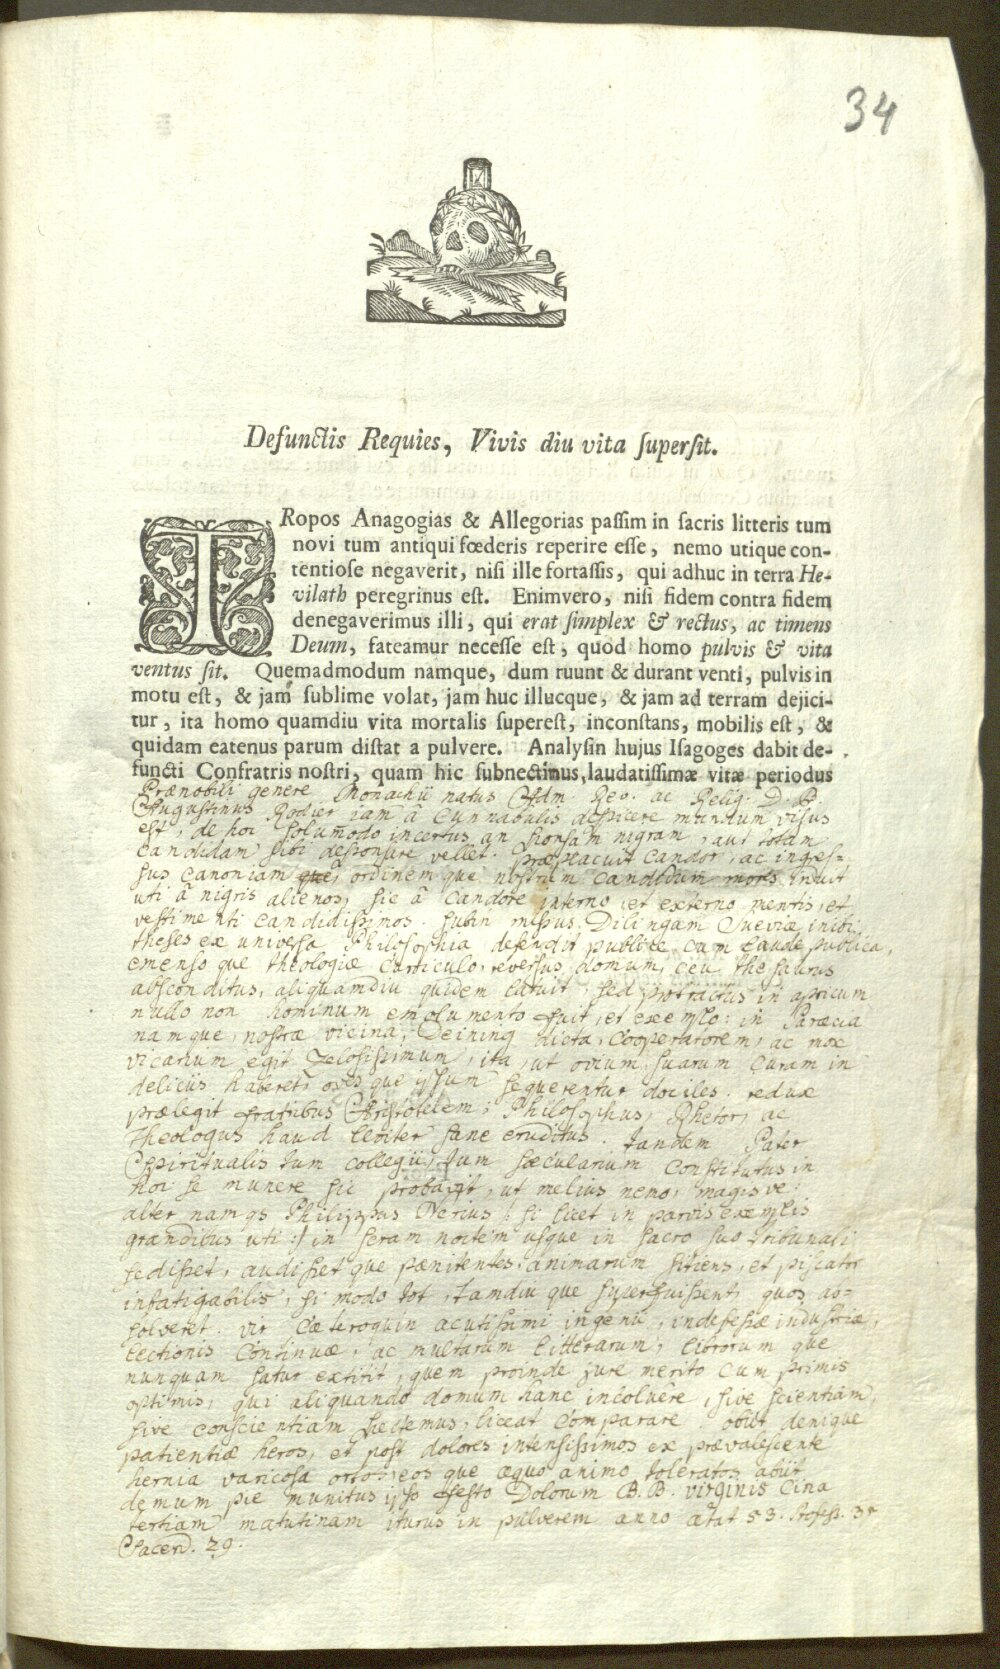 34
Defunctis Requies, Vivis diu vita superſit.
TRopos Anagogias & Allegorias paſſim in ſacris litteris tum
novi tum antiqui fœderis reperire eſſe, nemo utique con-
tentioſe negaverit, niſi ille fortaſſis, qui adhuc in terra He-
vilath peregrinus eſt. Enimvero, niſi fidem contra fidem
denegaverimus illi, qui erat ſimplex & rectus, ac timens
Deum, fateamur neceſſe eſt, quod homo pulvis & vita
ventus ſit. Quemadmodum namque, dum ruunt & durant venti, pulvis in
motu eſt, & jam ſublime volat, jam huc illucque, & jam ad terram dejici-
tur, ita homo quamdiu vita mortalis ſupereſt, inconſtans, mobilis eſt, &
quidam eatenus parum diſtat a pulvere. Analyſin hujus Iſagoges dabit de-
functi Confratris noſtri, quam hic ſubnectimus, laudatiſſimæ vitæ periodus
Prænobili genere Monachii natus Adm. Rev. ac Relig. D. P.
Augustinus Rodier iam â cunnabulis despicere mundum visus
est, de hoc solummodo incertus an sponsam nigram, aut totam
candidam sibi desponsare vellet. præplacuit candor, ac ingres-
sus canoniam ordinemque nostrum candidum mores induit
uti â nigris alienos, sic â candore interno et externo mentis, et
vestimenti candidissimos. subin missus Dilingam Sueviæ inibi
theses ex universa Philosophia defendit publice cum laude publica,
emenso que theologiæ curriculo, reversus domum, ceu thesaurus
absconditus, aliquamdiu quidem latuit, sed protractus in apricum
nullo non hominum emolumento fuit, et exemplo: in Paræcia
namque nostræ vicina, Deining dicta, Cooperatorem, ac mox
vicarium egit zelosissimum, ita, ut ovium suarum curam in
deliciis haberet, oves que ipsum sequerentur dociles. redux
prælegit fratribus Aristotelem; Philosophus, Rhetor, ac
Theologus haud leviter sane eruditus. tandem Pater
Spiritualis tum collegii, tum sæcularium constitutus in
hoc se munere sic probavit, ut melius nemo, magisve:
alter namqs Philippus Nerius /: si licet in parvis exemplis
grandibus uti :/ in seram noctem usque in sacro suo tribunali
sedisset, audisset que pænitentes, animarum sitiens, et piscator
infatigabilis, si modo tot, tamdiu que superfuissent, quos ab-
solveret. vir cæteroquin acutissimi ingenii, indefessæ industriæ,
lectionis continuæ, ac multarum litterarum, librorum que
nunquam satur extitit, quem proinde jure merito cum primis
optimis, qui aliquando domum hanc incoluêre, sive scientiam,
sive conscientiam spectemus, liceat comparare obiit denique
patientiæ heros, et post dolores intensissimos ex prævalescente
hernia varicosa ortos, eos que æquo animo toleratos abiit
demum pie munitus ipso festo Dolorum B. B. virginis circa
tertiam matutinam iturus in pulverem anno ætat 53. Profess. 35
Sacerd. 29.